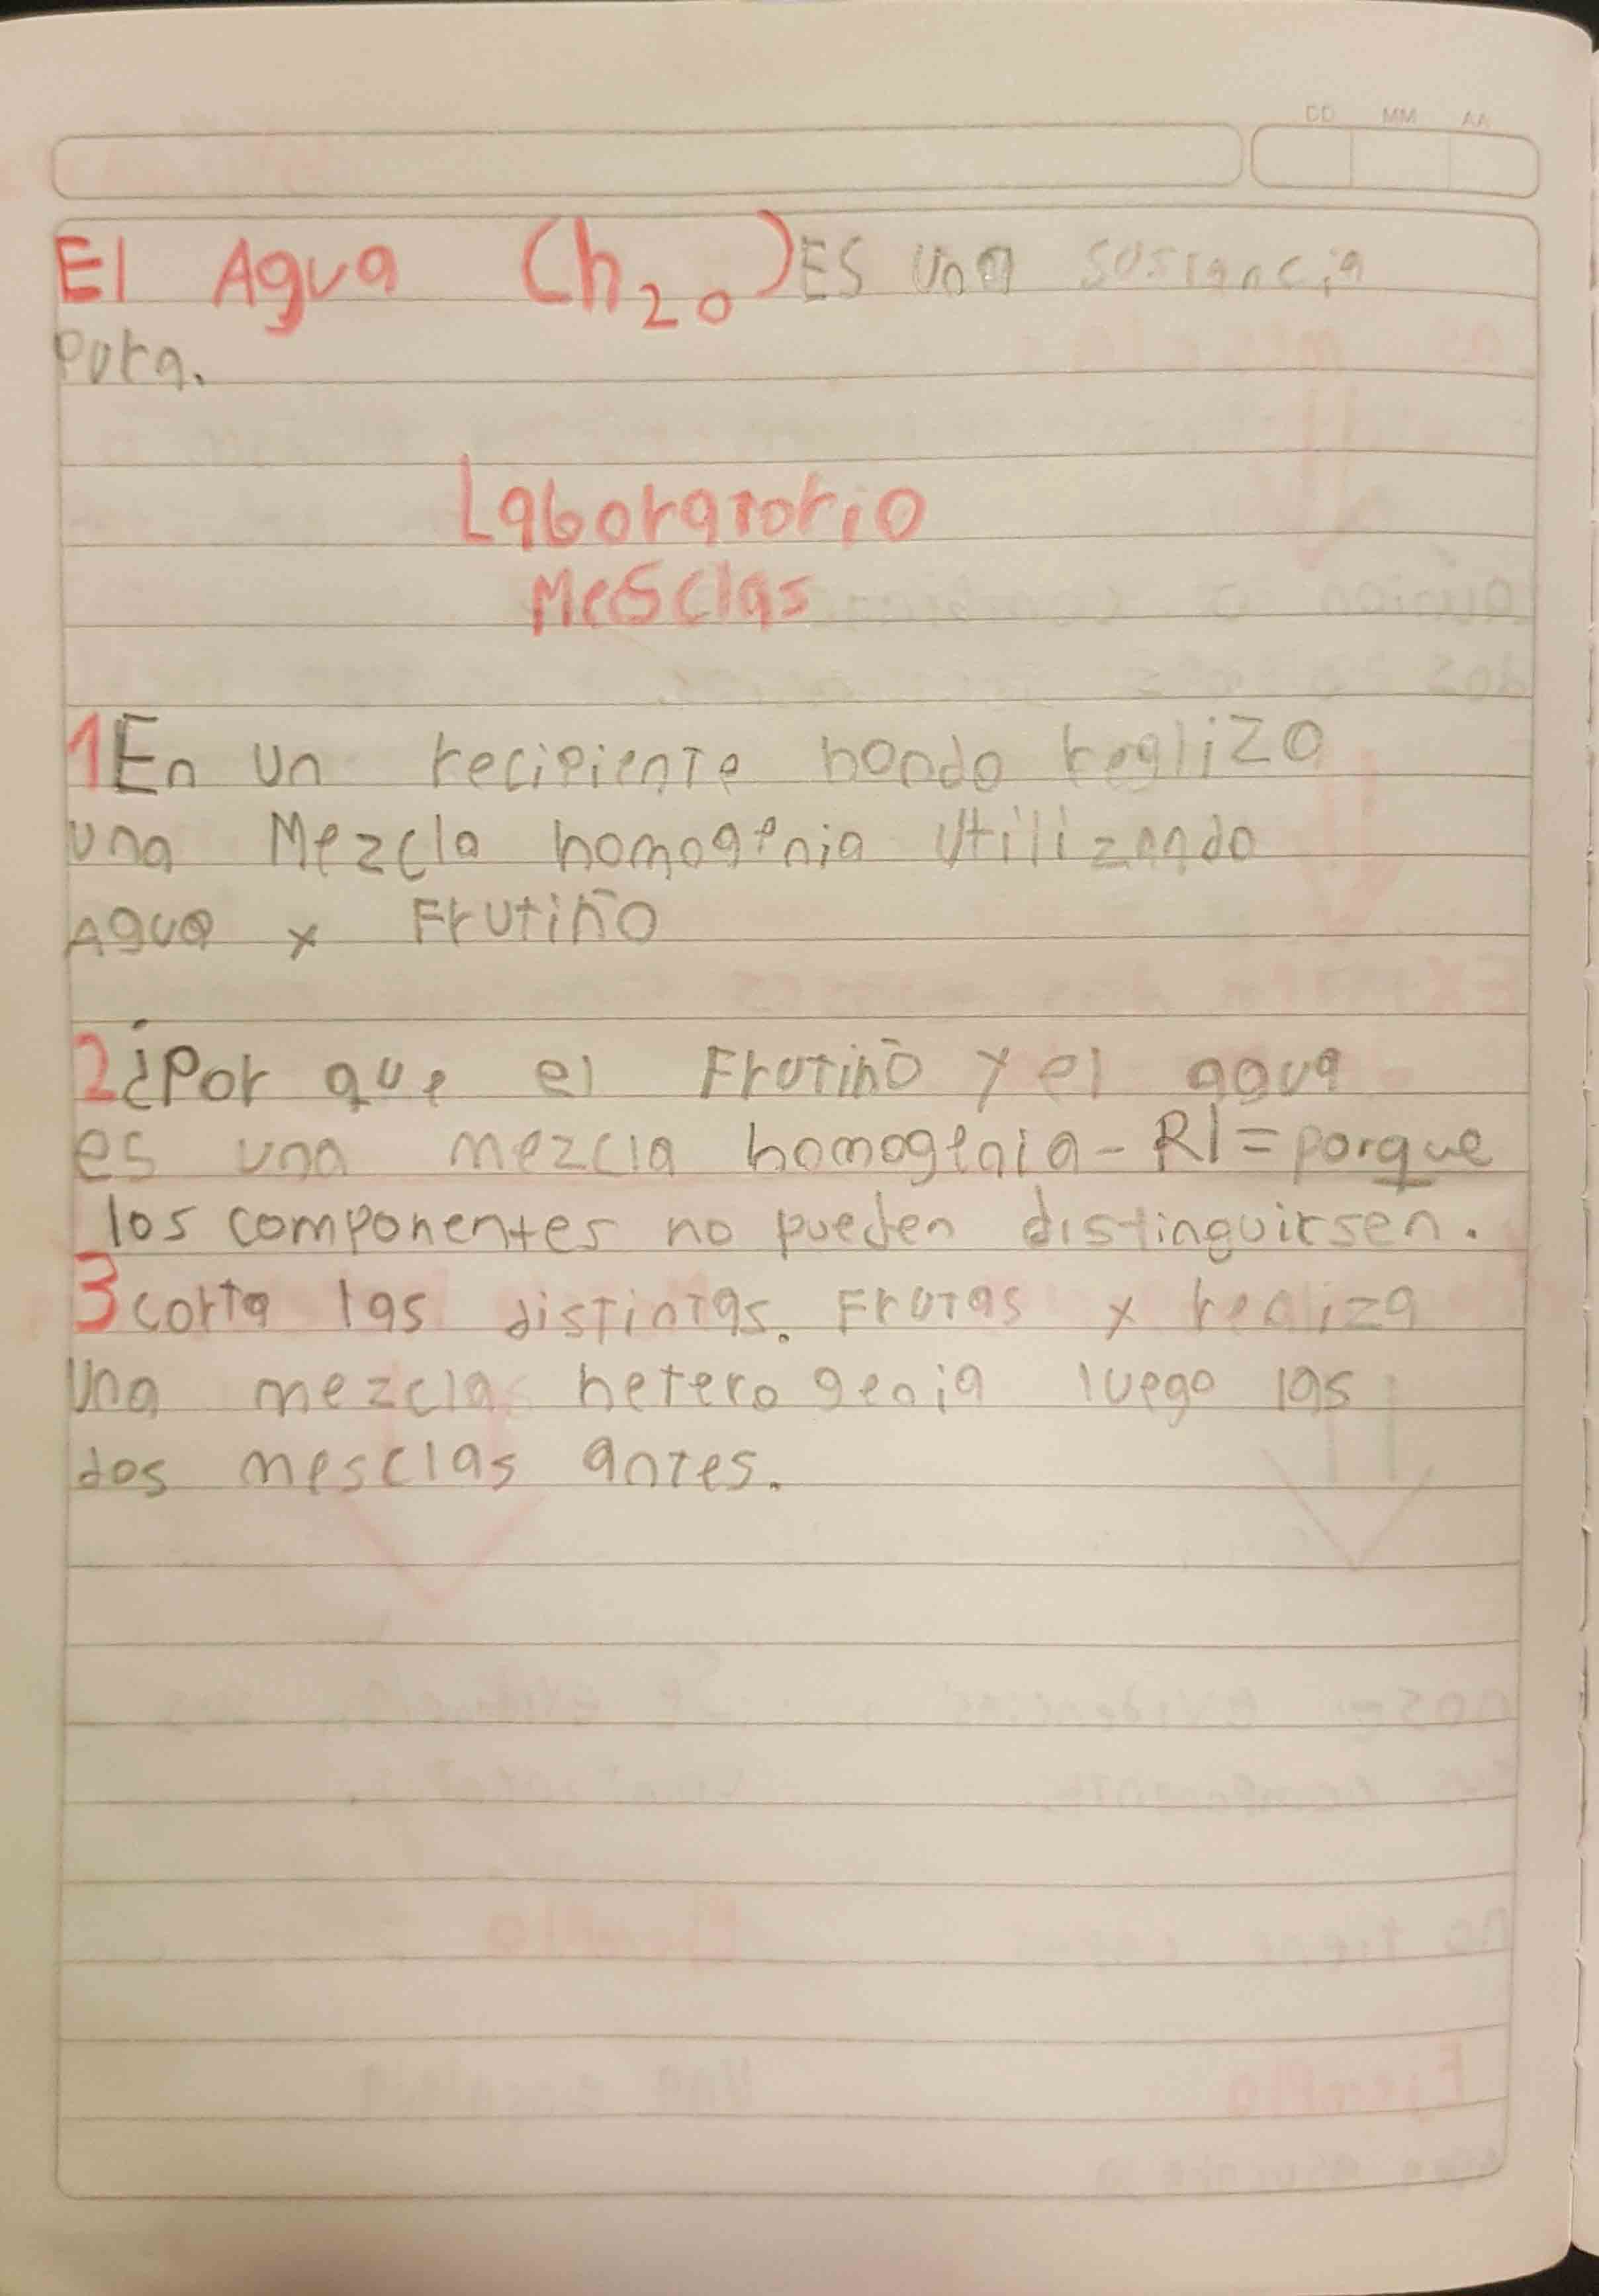 DD MM AA
El Agua (h2o) ES una sustancia
pura.
Laboratorio
Mesclas
1 En un recipiente hondo realizo
una Mezcla homogenia utilizando
Agua y Frutiño
2 ¿Por que el Frutiño y el agua
es una mezcla homogenia - R/= porque
los componentes no pueden distinguirsen.
3 corta las distintas. Frutas y realiza
una mezcla heterogenia luego las
dos mesclas antes.